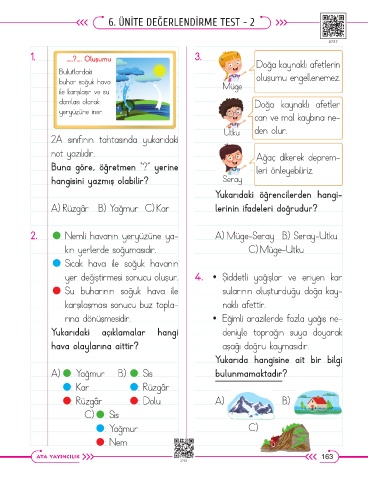 6. ÜNİTE DEĞERLENDİRME TEST - 2
1.
....?.... Oluşumu
Bulutlardaki
buhar soğuk hava
ile karşılaşır ve su
damlası olarak
yeryüzüne iner.
2A sınıfının tahtasında yukarıdaki
not yazılıdır.
Buna göre, öğretmen "?" yerine
hangisini yazmış olabilir?
A) Rüzgâr B) Yağmur C) Kar
2. Nemli havanın yeryüzüne ya-
kın yerlerde soğumasıdır.
Sıcak hava ile soğuk havanın
yer değiştirmesi sonucu oluşur.
Su buharının soğuk hava ile
karşılaşması sonucu buz topla-
rına dönüşmesidir.
Yukarıdaki açıklamalar hangi
hava olaylarına aittir?
A) Yağmur B) Sis
Kar Rüzgâr
Rüzgâr Dolu
C) Sis
Yağmur
Nem
3.
Doğa kaynaklı afetlerin
oluşumu engellenemez.
Müge
Doğa kaynaklı afetler
can ve mal kaybına ne-
den olur.
Utku
Ağaç dikerek deprem-
leri önleyebiliriz.
Seray
Yukarıdaki öğrencilerden hangi-
lerinin ifadeleri doğrudur?
A) Müge-Seray B) Seray-Utku
C) Müge-Utku
4. • Şiddetli yağışlar ve eriyen kar
sularının oluşturduğu doğa kay-
naklı afettir.
• Eğimli arazilerde fazla yağış ne-
deniyle toprağın suya doyarak
aşağı doğru kaymasıdır.
Yukarıda hangisine ait bir bilgi
bulunmamaktadır?
A) B)
C)
ATA YAYINCILIK
163